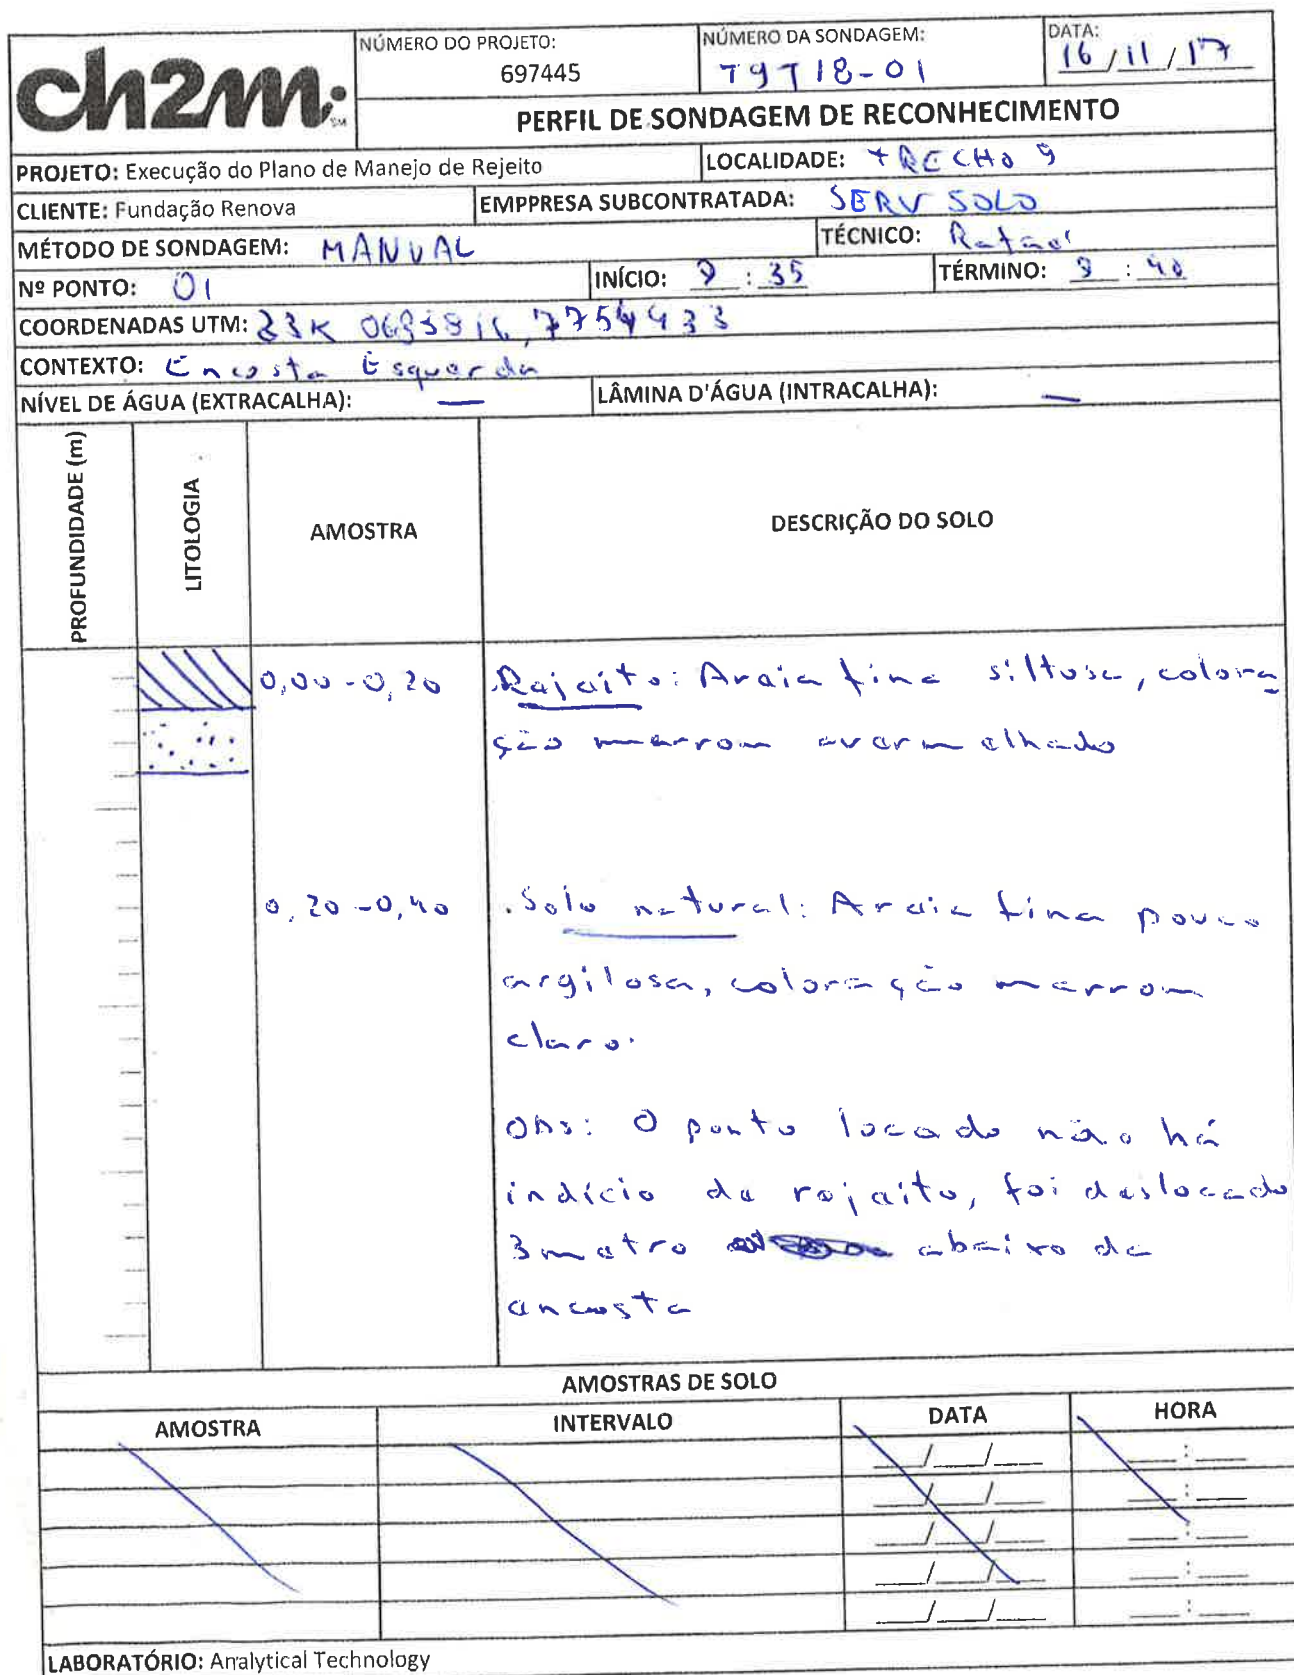 ch2m:
SM
NÚMERO DO PROJETO:
697445
NÚMERO DA SONDAGEM:
T9T18-01
DATA:
16/11/17
PERFIL DE SONDAGEM DE RECONHECIMENTO
PROJETO: Execução do Plano de Manejo de Rejeito
LOCALIDADE: TRECHO 9
CLIENTE: Fundação Renova
EMPPRESA SUBCONTRATADA: SERV SOLO
MÉTODO DE SONDAGEM: MANUAL
TÉCNICO: Rafael
Nº PONTO: 01
INÍCIO: 9:35
TÉRMINO: 9:40
COORDENADAS UTM: 23K 7754433
CONTEXTO: Encosta Esquerda
NÍVEL DE ÁGUA (EXTRACALHA): —
LÂMINA D'ÁGUA (INTRACALHA): —
PROFUNDIDADE (m)
LITOLOGIA
AMOSTRA
DESCRIÇÃO DO SOLO
0,00-0,20
Rejeito: Areia fina siltosa, colora
ção marrom avermelhado
0,20-0,40
.Solo natural: Areia fina pouco
argilosa, coloração marrom
claro.
Obs: O ponto locado não há
indício de rejeito, foi deslocado
3 metro abaixo da
encosta
AMOSTRAS DE SOLO
AMOSTRA
INTERVALO
DATA
HORA
LABORATÓRIO: Analytical Technology